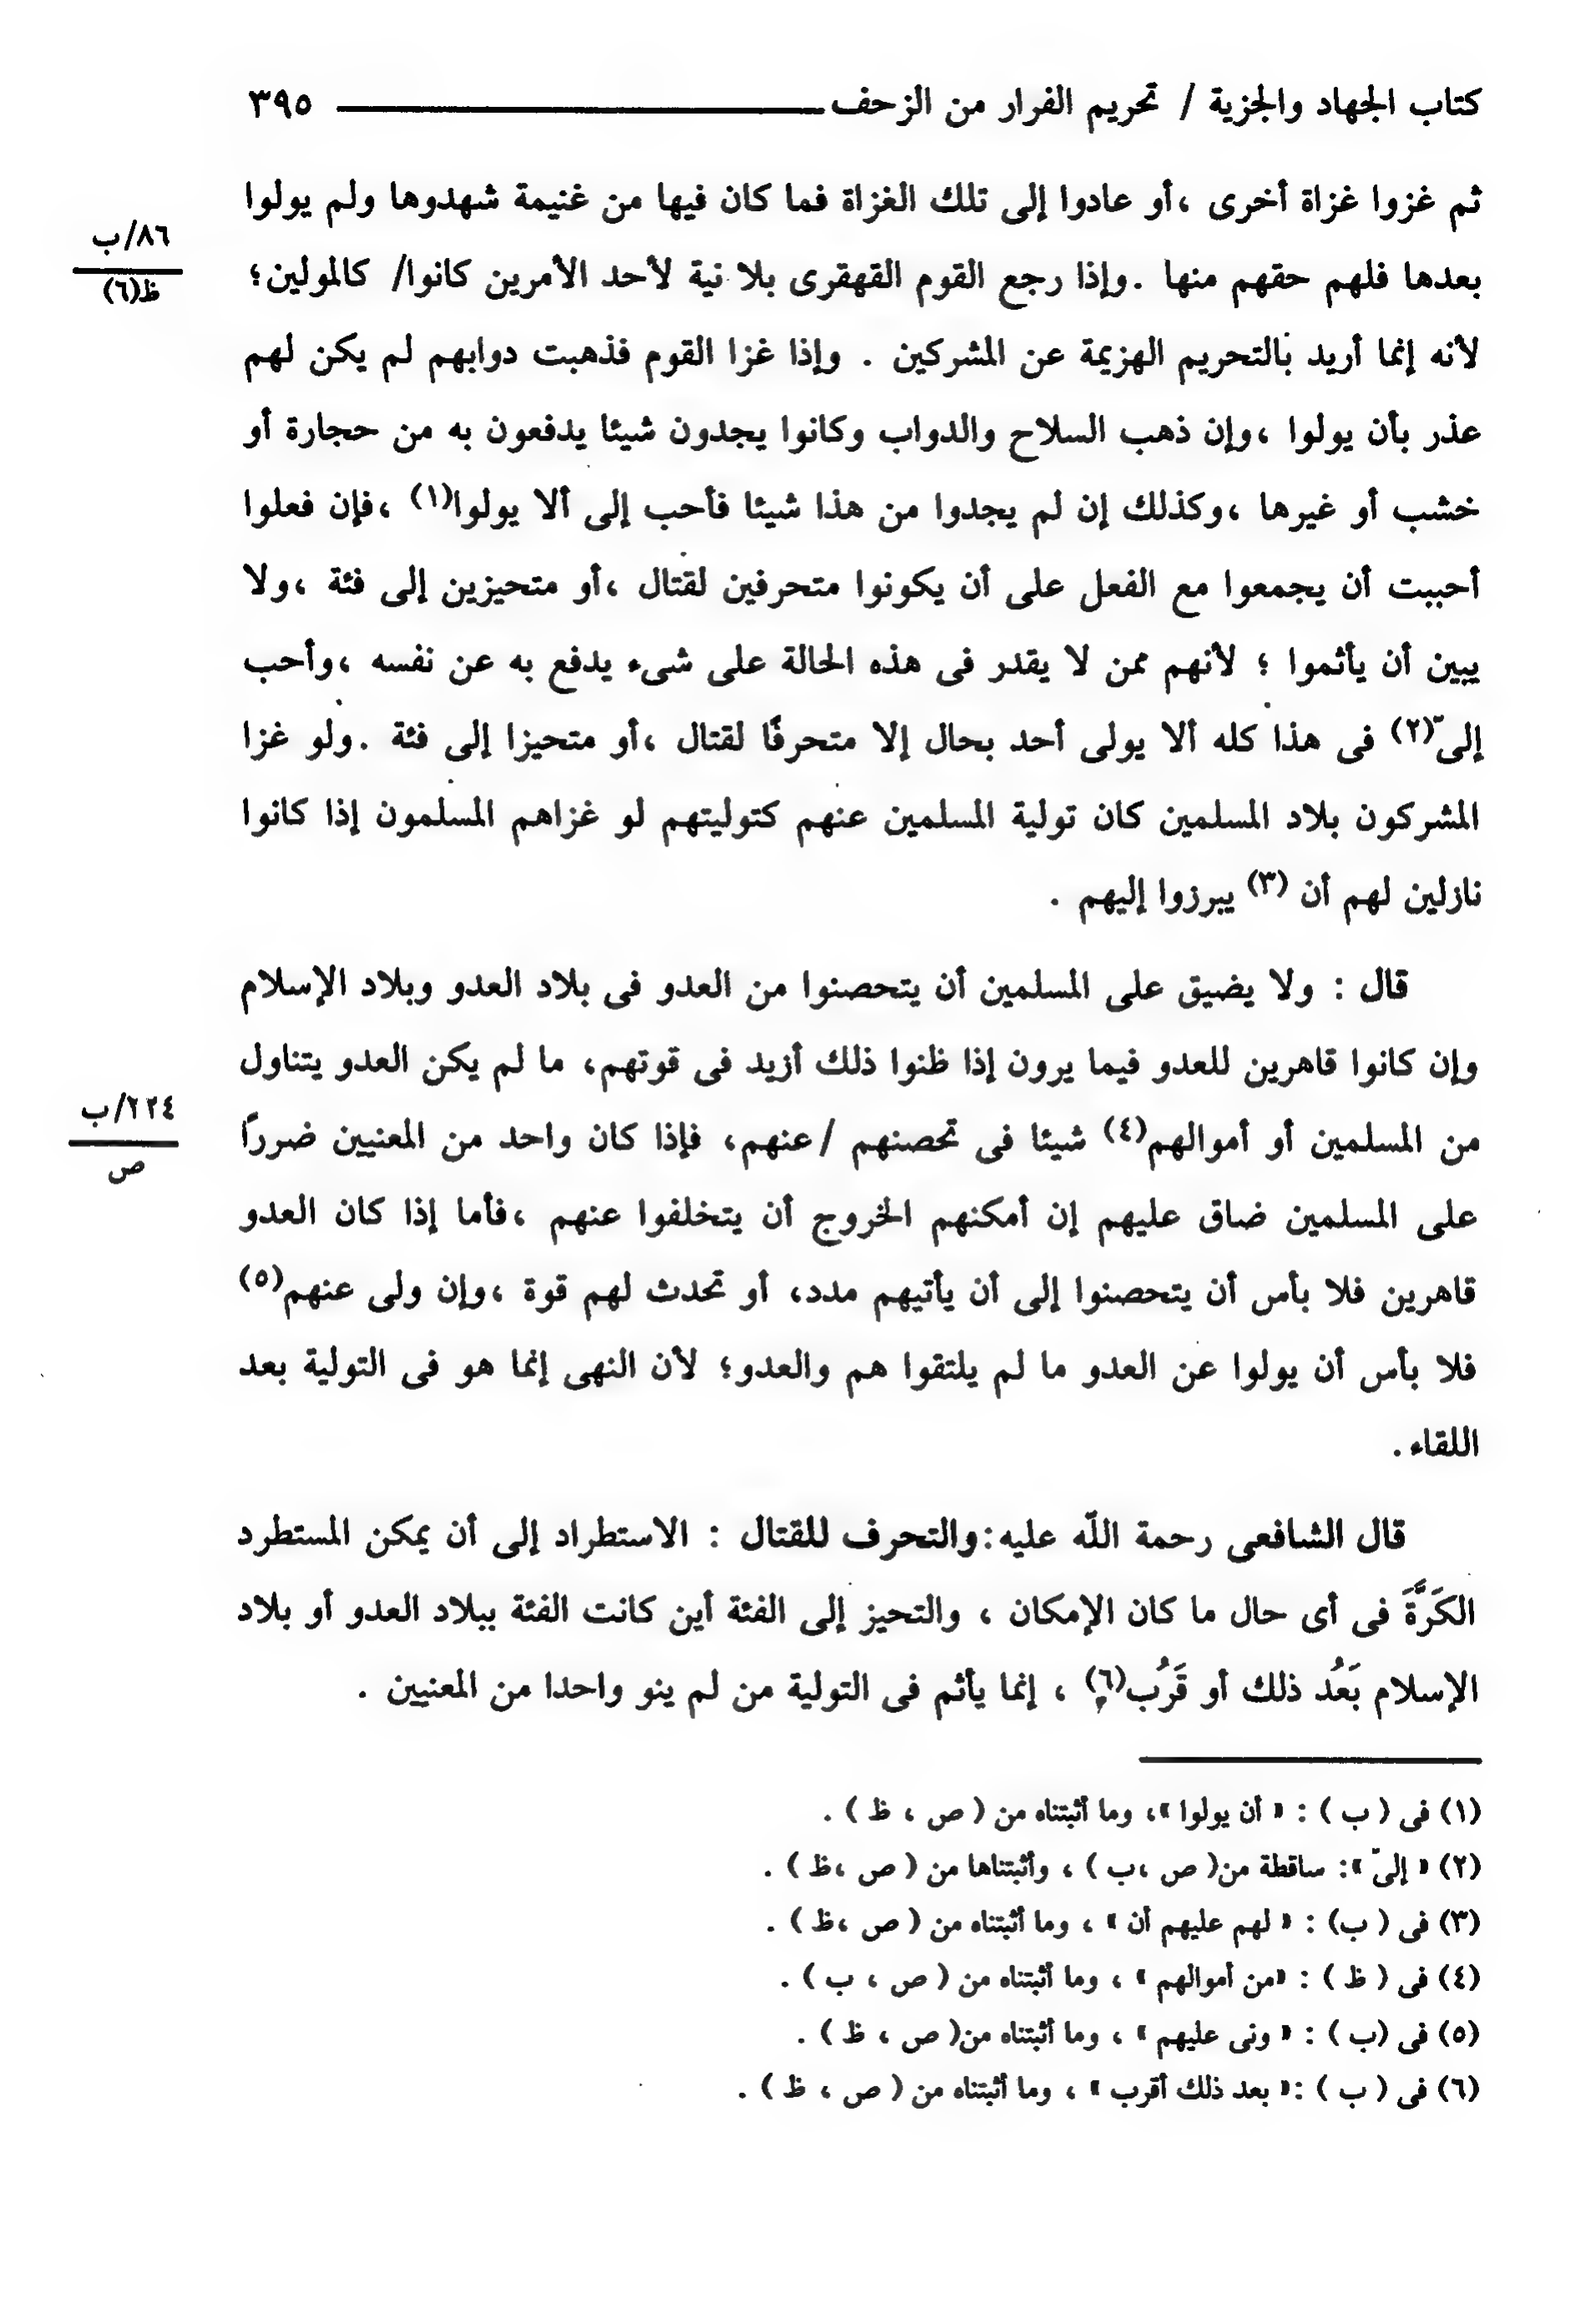 كتاب الجهاد والجزية / تحريم الفرار من الزحف ٣٩٥
ثم غزوا غزاة أخرى ،أو عادوا إلى تلك الغزاة فما كان فيها من غنيمة شهدوها ولم يولوا
٨٦/ب
بعدها فلهم حقهم منها .وإذا رجع القوم القهقرى بلا نية لأحد الأمرين كانوا/ كالمولين؛
ظ(٦)
لأنه إنما أريد بالتحريم الهزيمة عن المشركين . وإذا غزا القوم فذهبت دوابهم لم يكن لهم
عذر بأن يولوا ،وإن ذهب السلاح والدواب وكانوا يجدون شيئا يدفعون به من حجارة أو
خشب أو غيرها ،وكذلك إن لم يجدوا من هذا شيئا فأحب إلى ألا يولوا(١) ،فإن فعلوا
أحببت أن يجمعوا مع الفعل على أن يكونوا متحرفين لقتال ،أو متحيزين إلى فئة ،ولا
يبين أن يأثموا ؛ لأنهم ممن لا يقدر فى هذه الحالة على شىء يدفع به عن نفسه ،وأحب
إلىّ(٢) فى هذا كله ألا يولى أحد بحال إلا متحرفًا لقتال ،أو متحيزا إلى فئة .ولو غزا
المشركون بلاد المسلمين كان تولية المسلمين عنهم كتوليتهم لو غزاهم المسلمون إذا كانوا
نازلين لهم أن (٣) يبرزوا إليهم .
قال : ولا يضيق على المسلمين أن يتحصنوا من العدو فى بلاد العدو وبلاد الإسلام
وإن كانوا قاهرين للعدو فيما يرون إذا ظنوا ذلك أزيد فى قوتهم، ما لم يكن العدو يتناول
٢٢٤/ب
من المسلمين أو أموالهم(٤) شيئا فى تحصنهم /عنهم، فإذا كان واحد من المعنيين ضررًا
ص
على المسلمين ضاق عليهم إن أمكنهم الخروج أن يتخلفوا عنهم ،فأما إذا كان العدو
قاهرين فلا بأس أن يتحصنوا إلى أن يأتيهم مدد، أو تحدث لهم قوة ،وإن ولى عنهم(٥)
فلا بأس أن يولوا عن العدو ما لم يلتقوا هم والعدو؛ لأن النهى إنما هو فى التولية بعد
اللقاء.
قال الشافعى رحمة اللّه عليه:والتحرف للقتال : الاستطراد إلى أن يمكن المستطرد
الكَرَّةَ فى أى حال ما كان الإمكان ، والتحيز إلى الفئة أين كانت الفئة ببلاد العدو أو بلاد
الإسلام بَعُد ذلك أو قَرُب(٦) ، إنما يأثم فى التولية من لم ينو واحدا من المعنيين .
(١) فى ( ب ) : « أن يولوا »، وما أثبتناه من ( ص ، ظ ) .
(٢) « إلىّ »: ساقطة من( ص ،ب ) ، وأثبتناها من ( ص ،ظ ) .
(٣) فى ( ب) : « لهم عليهم أن » ، وما أثبتناه من ( ص ،ظ ) .
(٤) فى ( ظ ) : «من أموالهم » ، وما أثبتناه من ( ص ، ب ) .
(٥) فى (ب ) : « ونى عليهم » ، وما أثبتناه من( ص ، ظ ) .
(٦) فى ( ب ) :« بعد ذلك أقرب » ، وما أثبتناه من ( ص ، ظ ) .